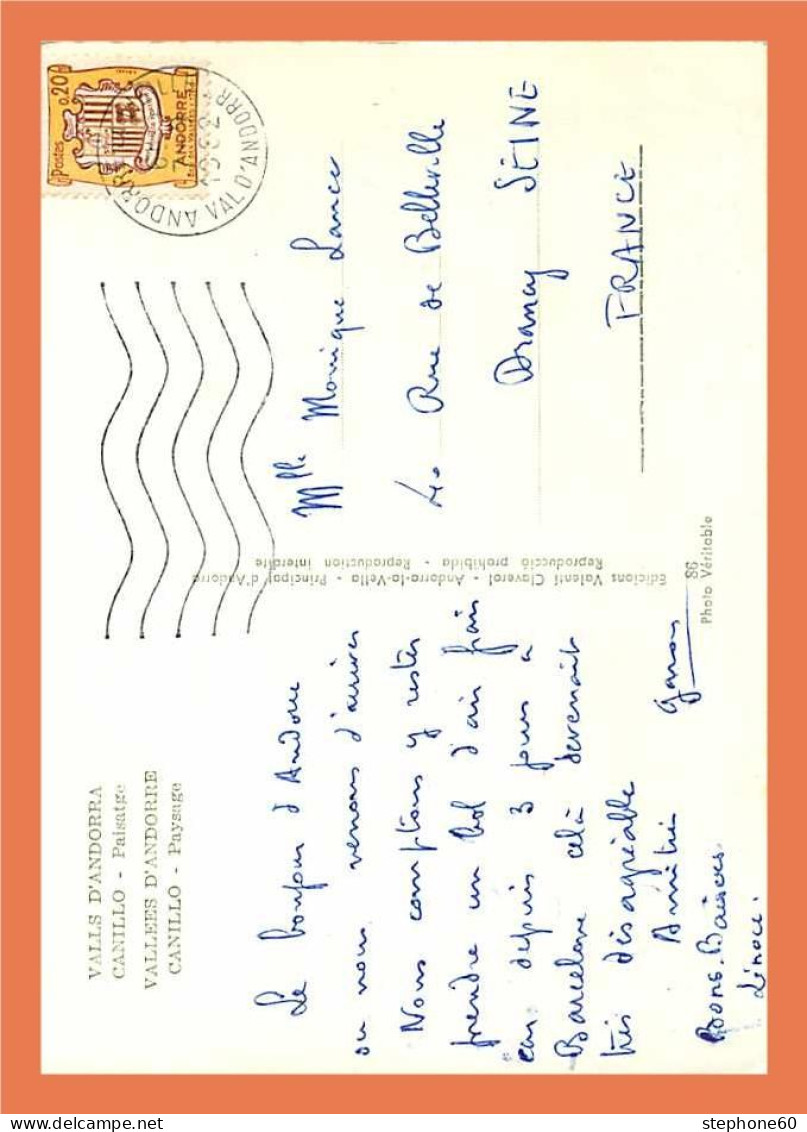 VALLS D'ANDORRA
CANILLO - Paisatge
VALLEES D'ANDORRE
CANILLO - Paysage
Le bonjour d'Andorre
où nous venons d'arriver
Nous comptons y rester
prendre un bol d'air frais
car depuis 3 jours à
Barcelone celà devenait
très désagréable
Amitiés
Bons Baisers
Edicions Valentí Claverol - Andorra-la-Vella - Principat d'Andorra
Reproducció prohibida - Reproduction interdite
86
Photo Véritable
Postes
0,20
ANDORRE
ANDORRE
VAL D'ANDORR
Mlle Monique Lance
Rue de Belleville
Drancy SEINE
FRANCE
stephone60